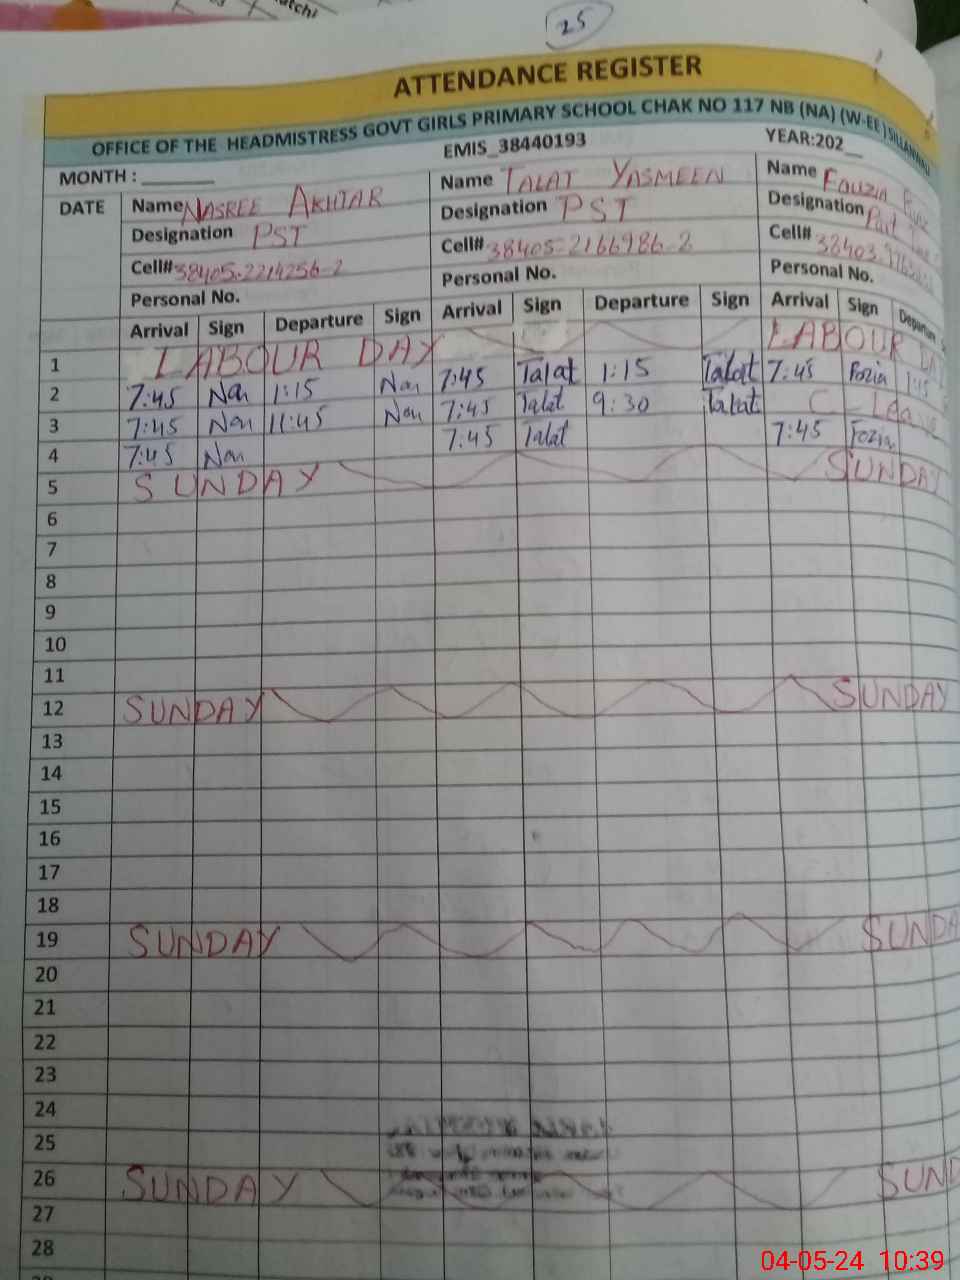 25
ATTENDANCE REGISTER
OFFICE OF THE HEADMISTRESS GOVT GIRLS PRIMARY SCHOOL CHAK NO 117 NB (NA) (W-EE)
EMIS_38440193
MONTH : ______ YEAR:202__
DATE Name NASREE AKHTAR Name TALAT YASMEEN Name FOUZIA
Designation PST Designation PST Designation Part
Cell# 38405-2214256-2 Cell# 38405-2166986-2 Cell# 38403
Personal No. Personal No. Personal No.
Arrival Sign Departure Sign Arrival Sign Departure Sign Arrival Sign Departure
1 LABOUR DAY LABOUR DA
2 7:45 Nan 1:15 Nan 7:45 Talat 1:15 Talat 7:45 Fozia 1:15
3 7:45 Nan 11:45 Nan 7:45 Talat 9:30 Talat C-Leave
4 7:45 Nan 7:45 Talat 7:45 Fozia
5 SUNDAY SUNDAY
6
7
8
9
10
11
12 SUNDAY SUNDAY
13
14
15
16
17
18
19 SUNDAY SUNDA
20
21
22
23
24
25
26 SUNDAY SUND
27
28
04-05-24 10:39